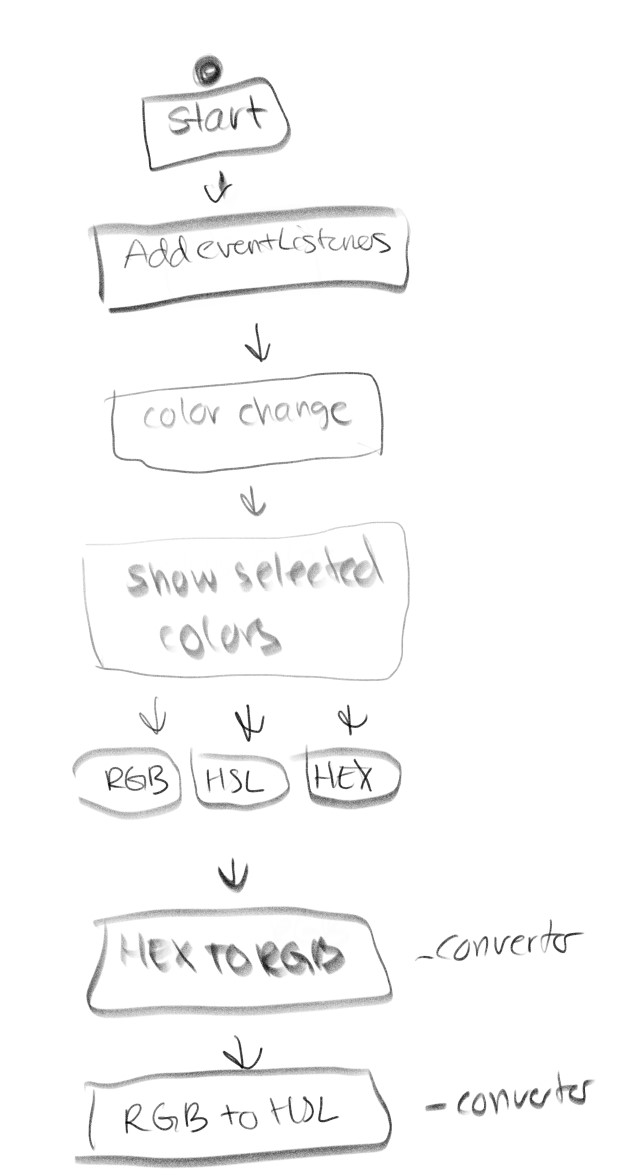 start
Add eventListeners
color change
show selected
colors
RGB HSL HEX
HEX TO RGB - converter
RGB to HSL - converter